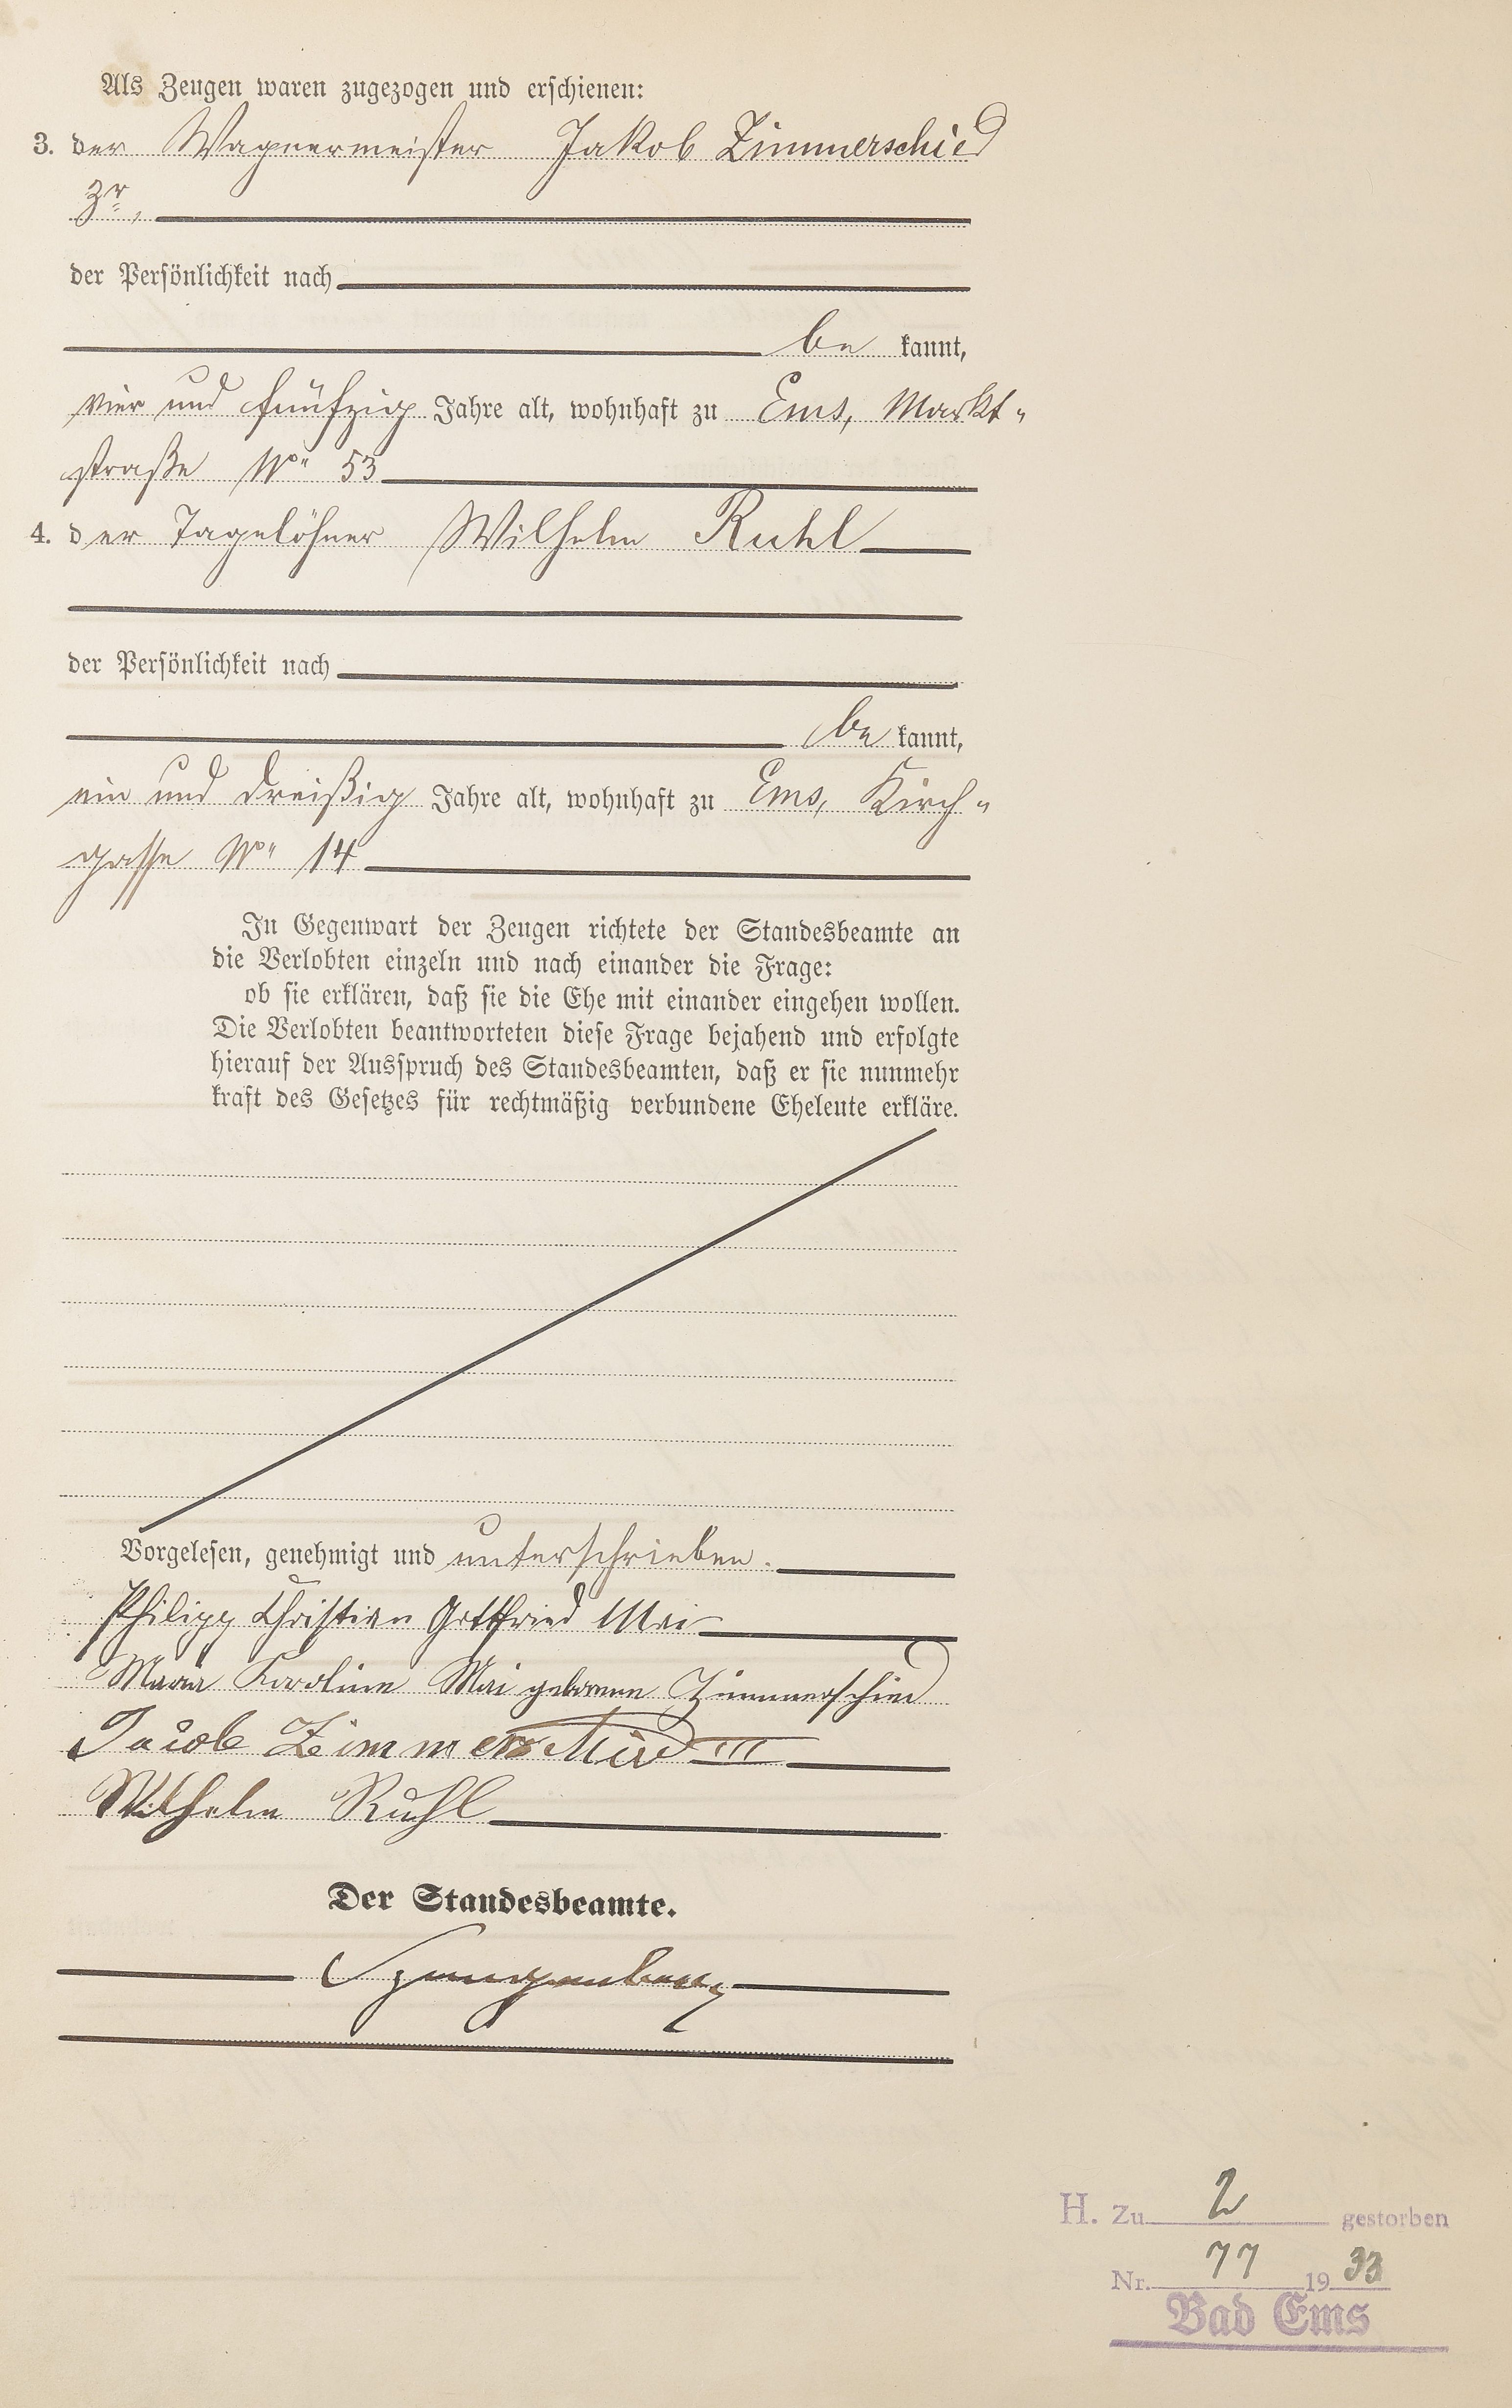 Als Zeugen waren zugezogen und erschienen:
3. der Wagnermeister Jakob Zimmerschied
3r,
der Persönlichkeit nach
be kannt,
vier und fünfzig Jahre alt, wohnhaft zu Ems, Markt-
straße No 53
4. der Tagelöhner Wilhelm Ruhl
der Persönlichkeit nach
be kannt,
ein und dreißig Jahre alt, wohnhaft zu Ems, Kirch-
gasse No 14
In Gegenwart der Zeugen richtete der Standesbeamte an
die Verlobten einzeln und nach einander die Frage:
ob sie erklären, daß sie die Ehe mit einander eingehen wollen.
Die Verlobten beantworteten diese Frage bejahend und erfolgte
hierauf der Ausspruch des Standesbeamten, daß er sie nunmehr
kraft des Gesetzes für rechtmäßig verbundene Eheleute erkläre.
Vorgelesen, genehmigt und unterschrieben.
Philipp Christian Gottfried Mai
Maria Karoline Mai geborene Zimmerschied
Jacob Zimmerschied III
Wilhelm Ruhl
Der Standesbeamte.
Spangenberg
H. Zu 2 gestorben
Nr. 77 1933
Bad Ems